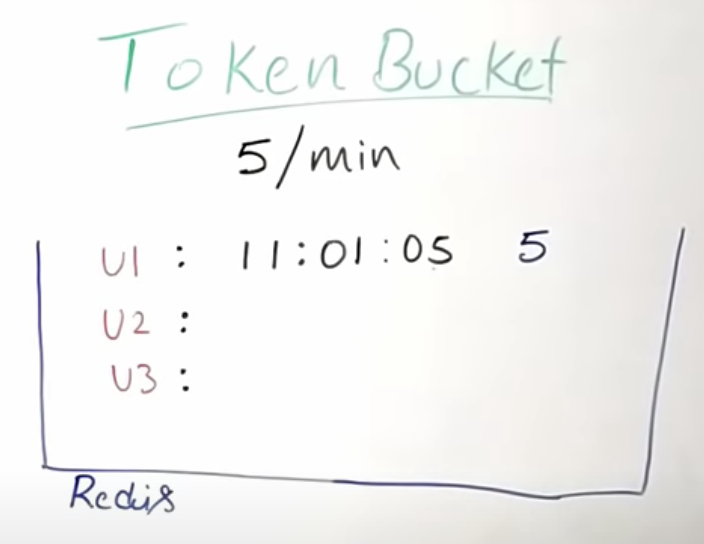 Token Bucket
5/min
U1 : 11:01:05 5
U2 :
U3 :
Redis